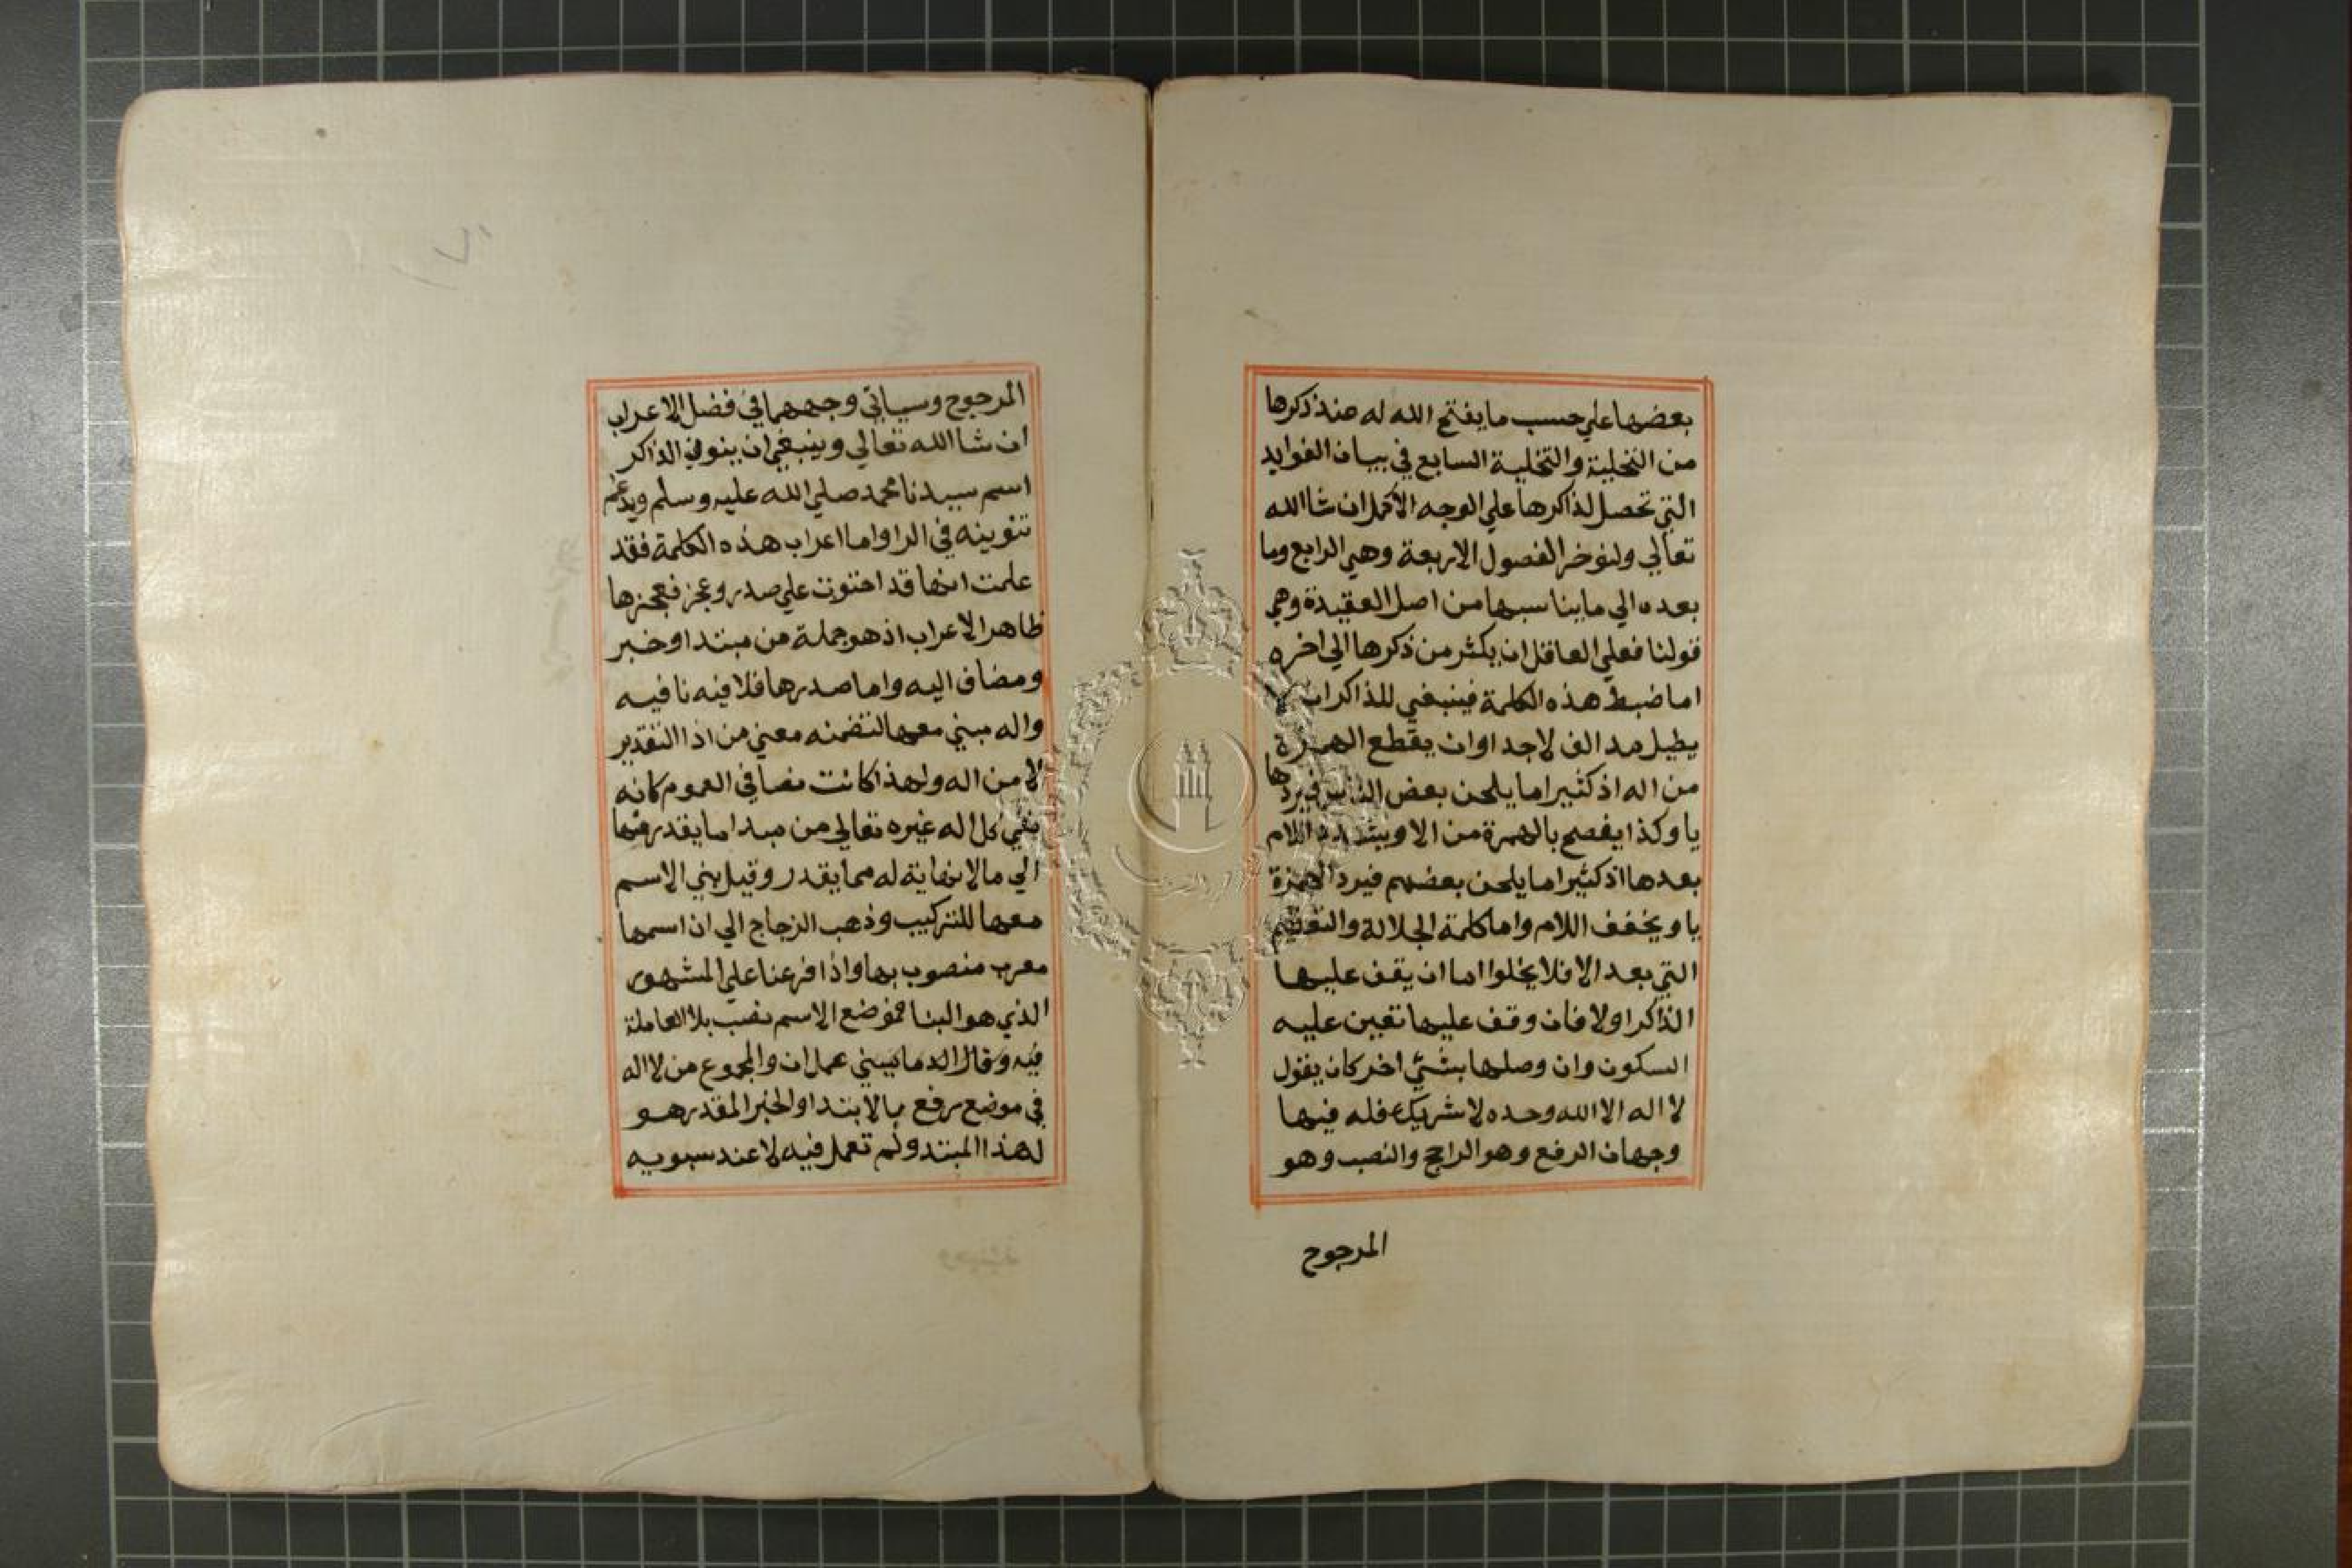 بعضها علي حسب ما يفتح الله له عند ذكرها
من التحلية والتخلية السابع في بيان الفوايد
التي تحصل لذاكرها علي الوجه الاكمل ان شا الله
تعالي ولنوخر الفصول الاربعة وهي الرابع وما
بعده الي ما يناسبها من اصل العقيدة وهي
قولنا فعلي العاقل ان يكثر من ذكرها الي اخره
اما ضبط هذه الكلمة فينبغي للذاكر ان لا
يطيل مد الف لا جدا وان يقطع الهمزة
من اله اذ كثيرا ما يلحن بعض الناس فيردها
يا وكذا يفصح بالهمزة من الا ويشدد اللام
بعدها اذ كثيرا ما يلحن بعضهم فيرد الهمزة
يا ويخفف اللام واما كلمة الجلالة والتعظيم
التي بعد الا فلا يخلوا اما ان يقف عليها
الذاكر اولا فان وقف عليها تعين عليه
السكون وان وصلها بشئ اخر كان يقول
لا اله الا الله وحده لا شريك فله فيها
وجهان الرفع وهو الراجح والنصب وهو
المرجوح
المرجوح وسياتي وجههما في فصل الاعراب
ان شا الله تعالي وينبغي ان ينون الذاكر
اسم سيدنا محمد صلي الله عليه وسلم ويدغم
تنوينه في الرا واما اعراب هذه الكلمة فقد
علمت انها قد احتوت علي صدر وعجز فعجزها
ظاهر الاعراب اذ هو جملة من مبتدا وخبر
ومضاف اليه واما صدرها فلا فيه نافيه
واله مبني معها لتضمنه معني من اذ التقدير
لا من اله ولهذا كانت نصا في العموم كانه
نفي كل اله غيره تعالي من مبدا ما يقدر منها
الي ما لا نهاية له مما يقدر وقيل بني الاسم
معها للتركيب وذهب الزجاج الي ان اسمها
معرب منصوب بها واذا فرعنا علي المشهور
الذي هو البنا فموضع الاسم نصب بلا العاملة
فيه وقال الدماميني عمل ان والمجموع من لا اله
في موضع رفع بالابتدا والخبر المقدر هو
لهذا المبتد ولم تعمل فيه لا عند سبويه